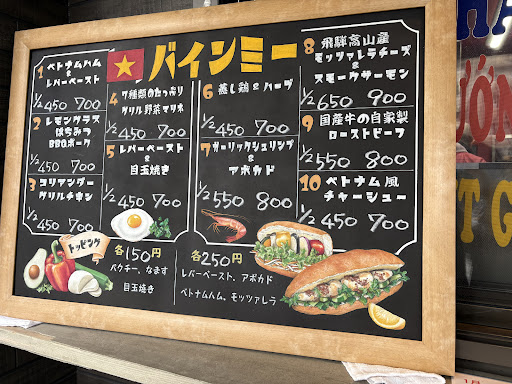 バインミー
1 ベトナムハム
&
レバーペースト
1/2 450 700
2 レモングラス
はちみつ
BBQポーク
1/2 450 700
3 コリアンダー
グリルチキン
1/2 450 700
4 7種類のたっぷり
グリル野菜マリネ
1/2 450 700
5 レバーペースト
&
目玉焼き
1/2 450 700
6 蒸し鶏&ハーブ
1/2 450 700
7 ガーリックシュリンプ
&
アボカド
1/2 550 800
8 飛騨高山産
モッツァレラチーズ
&
スモークサーモン
1/2 650 900
9 国産牛の自家製
ローストビーフ
1/2 550 800
10 ベトナム風
チャーシュー
1/2 450 700
トッピング
各150円
パクチー、なます
目玉焼き
各250円
レバーペースト、アボカド
ベトナムハム、モッツァレラ